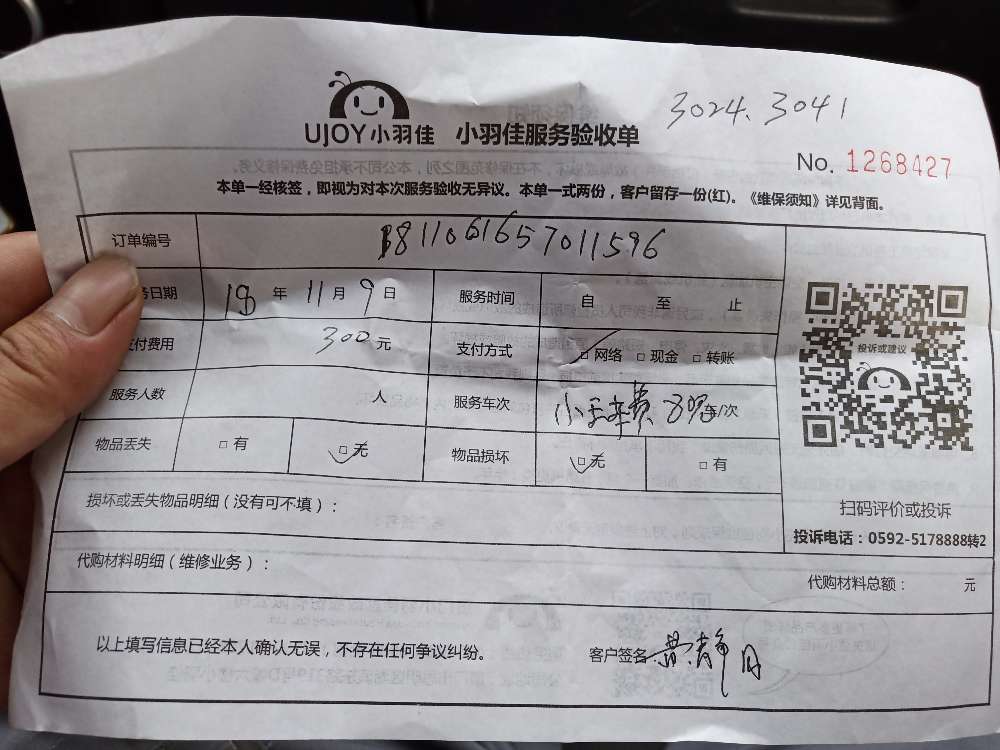 3024.3041
UJOY小羽佳 小羽佳服务验收单
No. 1268427
本单一经核签，即视为对本次服务验收无异议。本单一式两份，客户留存一份(红)。《维保须知》详见背面。
订单编号 1811061657011596
务日期 18 年 11 月 9 日 服务时间 自 至 止
支付费用 300元 支付方式 □网络 □现金 □转账
投诉或建议
服务人数 人 服务车次 车/次
物品丢失 □有 □无 物品损坏 □无 □有
损坏或丢失物品明细（没有可不填）：
扫码评价或投诉
投诉电话：0592-5178888转2
代购材料明细（维修业务）：
代购材料总额： 元
以上填写信息已经本人确认无误，不存在任何争议纠纷。 客户签名 黄静月